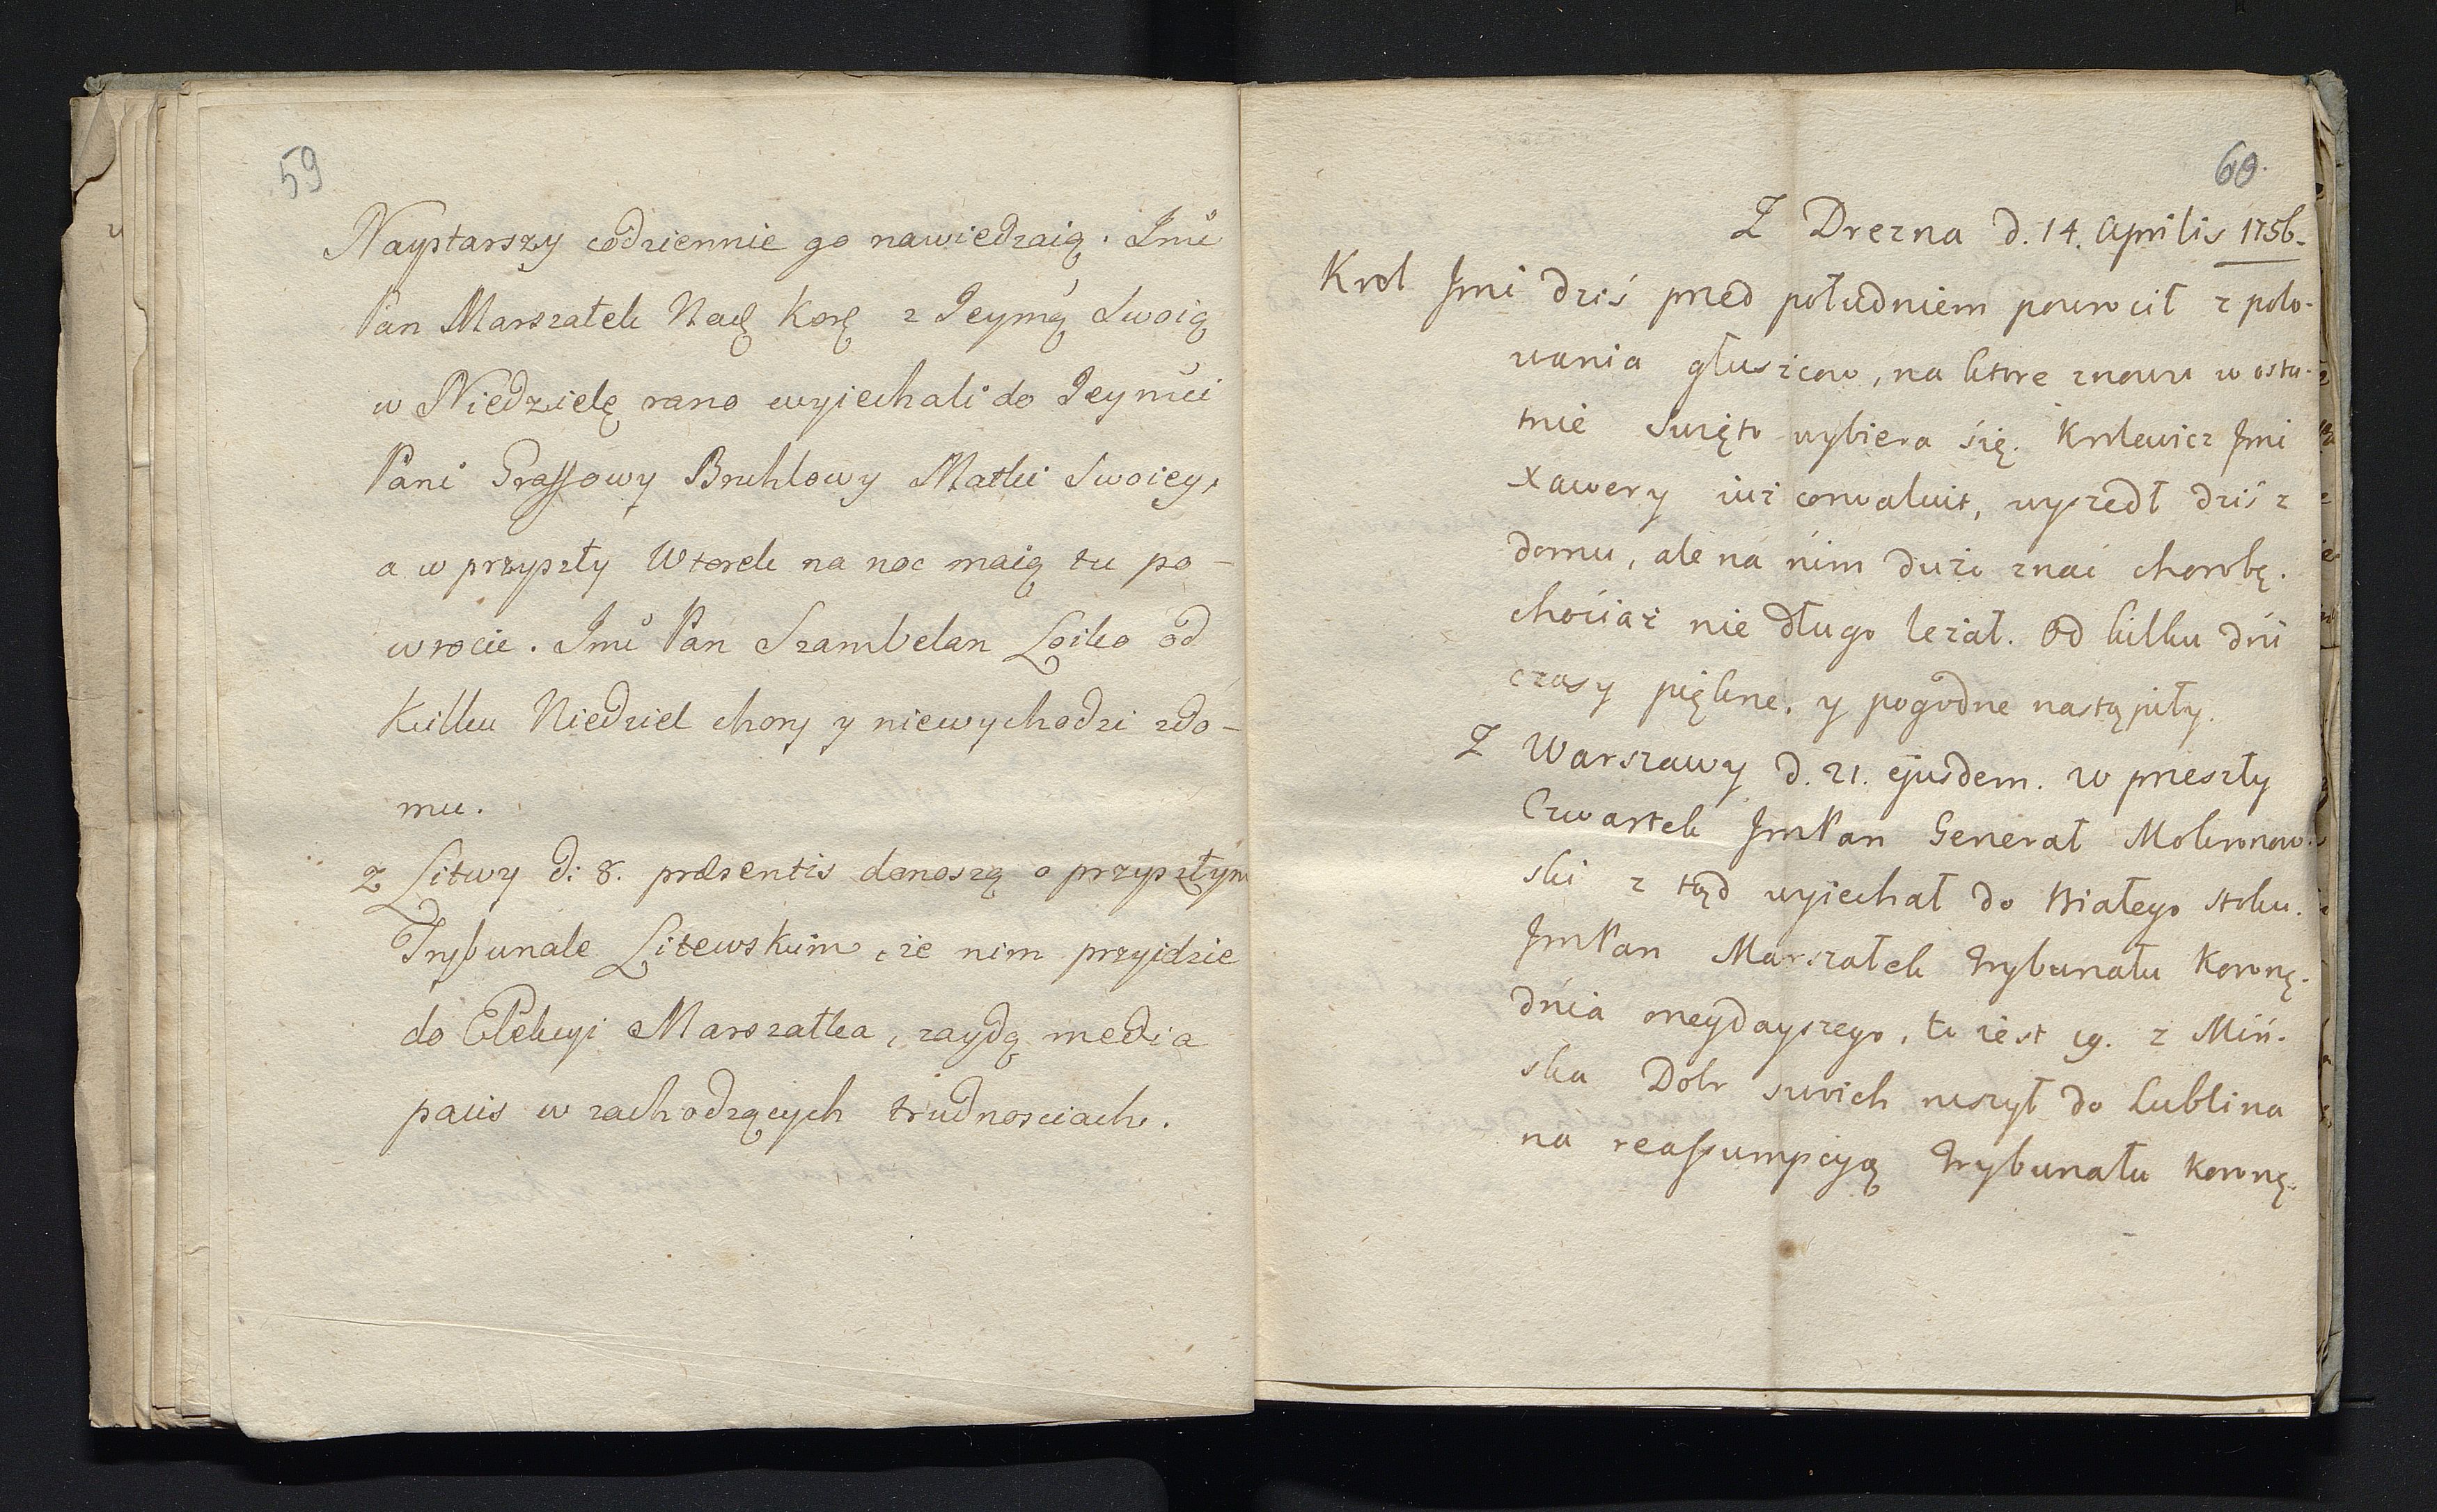 59
Naystarszy codziennie go nawiedzaią. Jmć
Pan Marszałek Nadꝯ Korꝯ z Jeymą Swoią
w Niedzielę rano wyiechali do Jeymći
Pani Graffowy Bruhlowy Matki Swoiey,
a w przyszły Wtorek na noc maią tu po-
wrocic. Jmć Pan Szambelan Łoiko od
Kilku Niedziel chory y niewychodzi zdo-
mu.
z Litwy d: 8. præsentis donoszą o przyszłym
Trybunale Litewskim, że nim przyidzie
do Elekcyi Marszałka, zaydą media
pacis w zachodzących trudnosciach.
60.
Z Drezna d. 14. Aprilis 1756.
Krol Jmć dziś przed południem powrocił z polo-
wania głuszcow, na ktore znowu w osta-
tnie Swięto wybiera się. Krolewicz Jmć
Xawery iuż convaluit, wyszedł dziś z
domu, ale na nim dużo znać chorobę.
chociaż nie długo leżał. Od kilku dni
czasy piękne, y pogodne nastąpiły.
Z Warszawy d. 21. ejusdem. W przeszły
Czwartek JmPan Generał Mokronow-
ski z tąd wyiechał do Białego stoku.
JmPan Marszałek Trybunału Koronę.
dnia onegdayszego, to iest 19. z Miń-
ska Dobr swoich ruszył do Lublina
na reassumpcyą Trybunału Koronę.